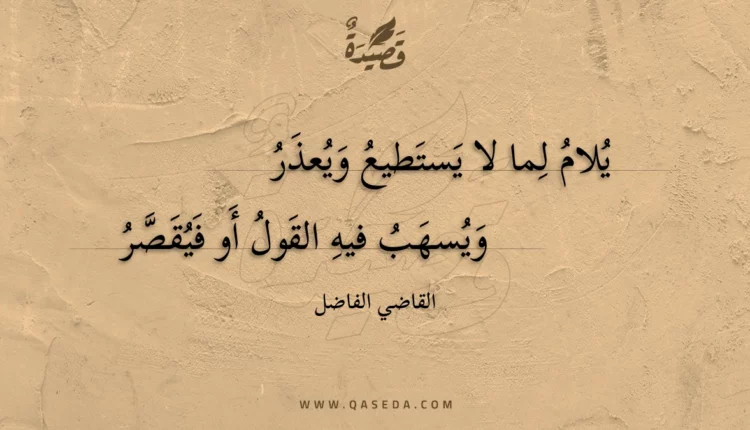 قَصِيدَةٌ
يُلامُ لِما لا يَستَطيعُ وَيُعذَرُ
وَيُسهَبُ فيهِ القَولُ أَو فَيُقَصَّرُ
القاضي الفاضل
WWW.QASEDA.COM